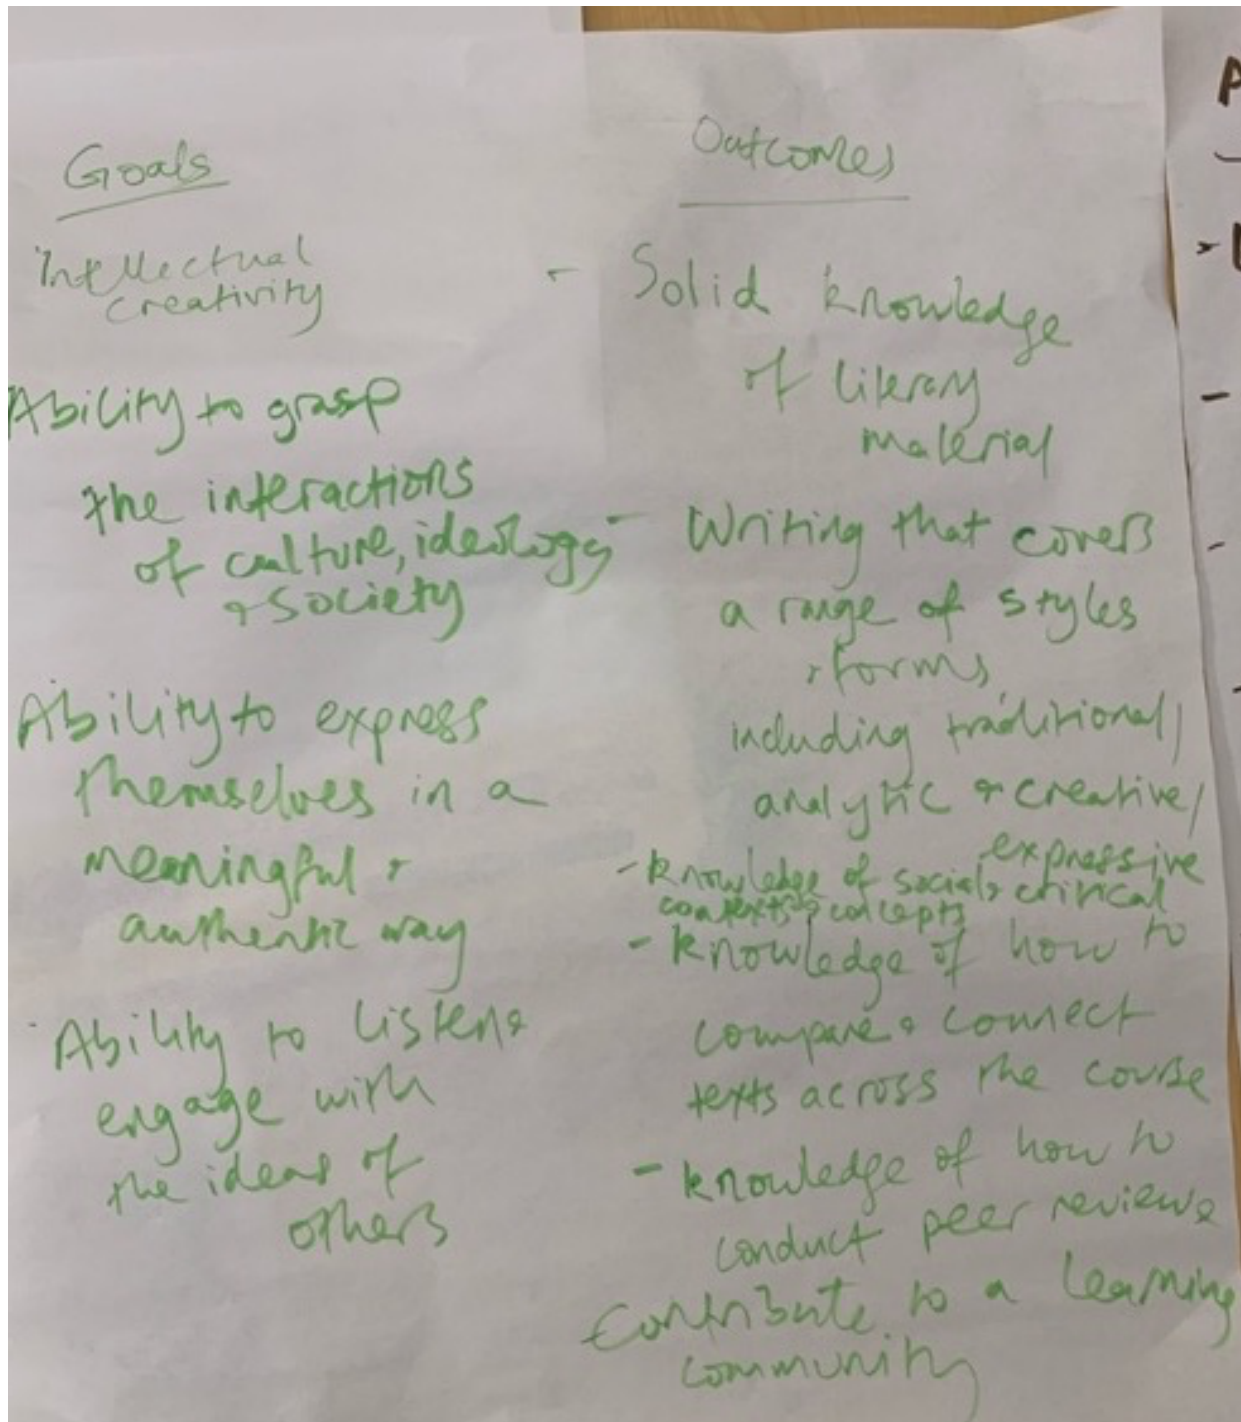 Goals
Intellectual
creativity
Ability to grasp
the interactions
of culture, ideology
& society
Ability to express
themselves in a
meaningful &
authentic way
Ability to listen &
engage with
the ideas of
others
Outcomes
- Solid knowledge
of literary
material
- Writing that covers
a range of styles
& forms,
including traditional/
analytic & creative/
expressive
- knowledge of social & critical
contexts & concepts
- knowledge of how to
compare & connect
texts across the course
- knowledge of how to
conduct peer review &
contribute to a learning
community